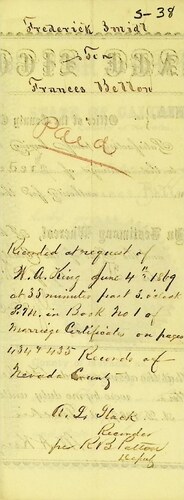 S-38
Frederick Smidt
To
Frances Bellon
Paid
Recorded at request of
W. A. King June 4th 1869
at 35 minutes past 5 o'clock
P.M. in Book No 1 of
Marriage Certificates on pages
434 & 435 Records of
Nevada County
Recorder
per
Deputy